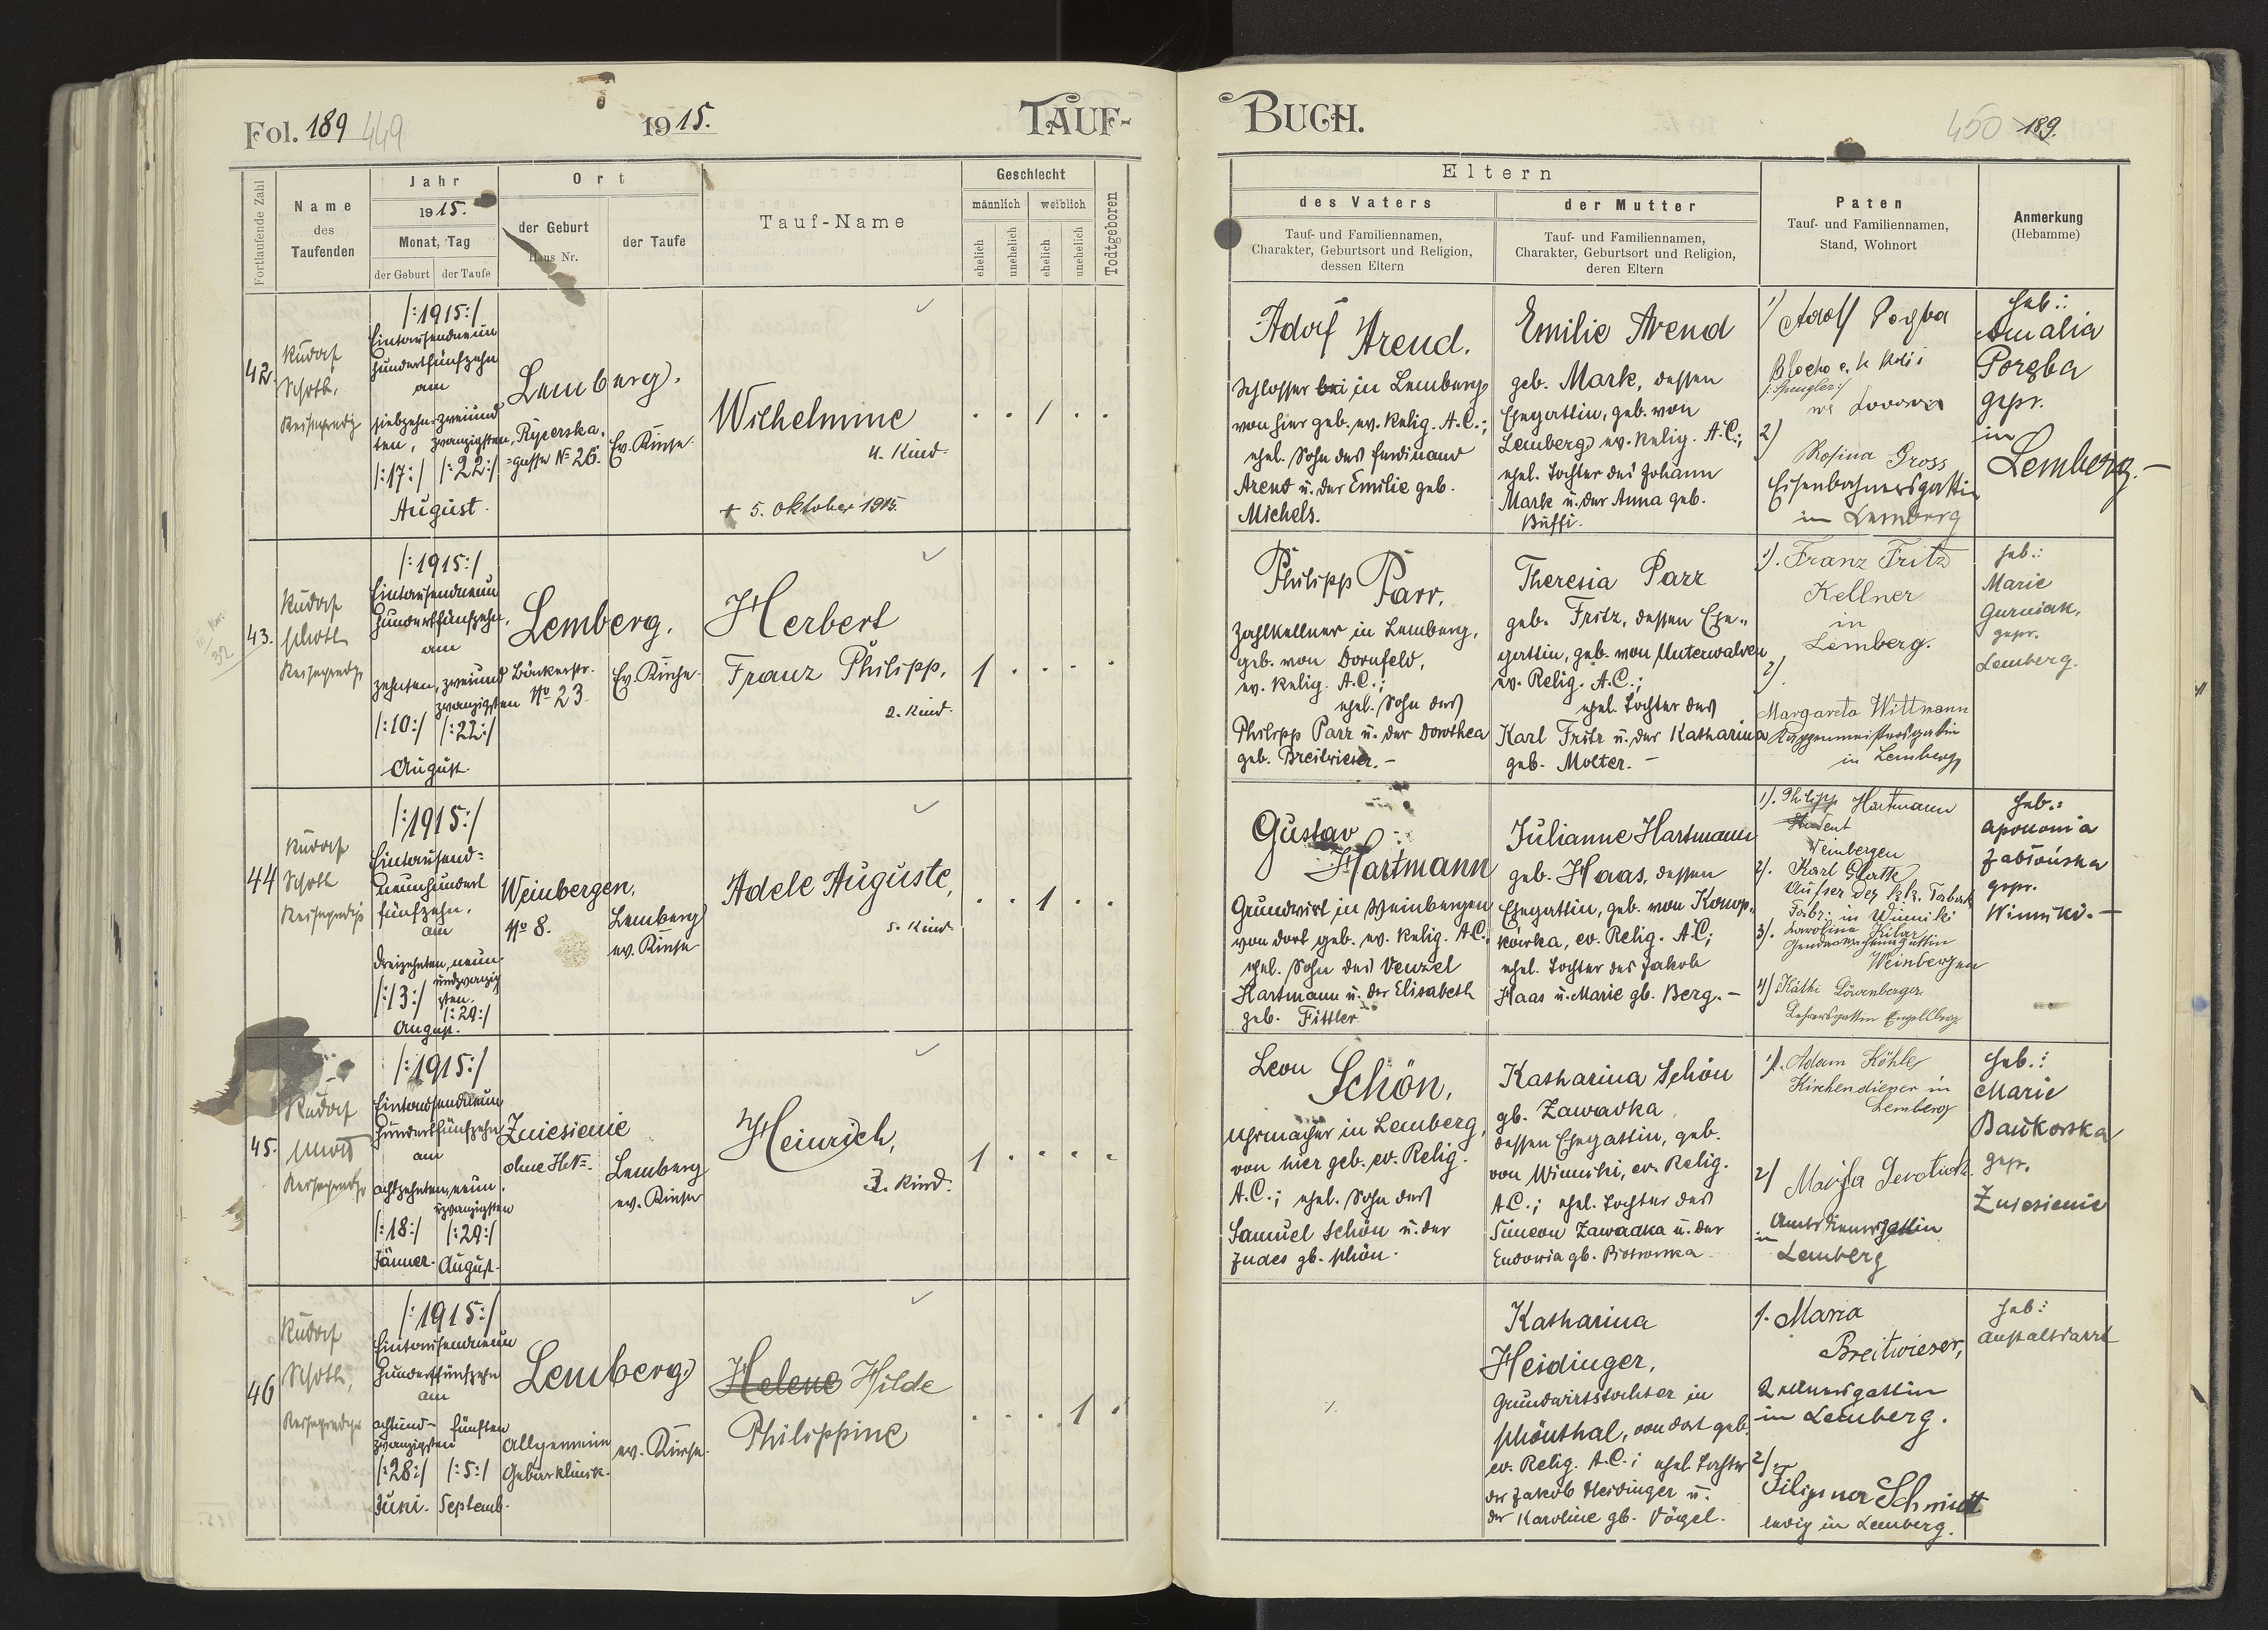 Fol. 189 449
1915.
TAUF-
Fortlaufende Zahl
Name
des
Taufenden
Jahr
1915.
Monat, Tag
der Geburt
der Taufe
Ort
der Geburt
Haus Nr.
der Taufe
Tauf-Name
Geschlecht
männlich
weiblich
ehelich
unehelich
ehelich
unehelich
Todtgeboren
42.
Rudolf
Schoth,
Reiseprediger
/:1915:/
Eintausendneun
hundertfünfzehn
am
siebzehn-
ten,
zweiund
zwanzigsten,
/:17:/
/:22:/
August.
Lemberg.
Rycerska-
gasse No 26.
Ev. Kirche
Wilhelmine
4. Kind.
+ 5. Oktober 1915.
43.
Rudolf
Schoth
Reiseprediger
/:1915:/
Eintausendneun
hundertfünfzehn,
am
zehnten,
zweiund
zwanzigsten
/:10:/
/:22:/
August.
Lemberg.
Bäckerstr.
No 23
Ev. Kirche
Herbert
Franz Philipp.
2. Kind.
1
44
Rudolf
Schoth
Reiseprediger
/:1915:/
Eintausend=
neunhundert
fünfzehn.
am
dreizehnten,
neun-
undzwanzig
sten.
/:13:/
/:29:/
August.
Weinbergen,
No 8.
Lemberg
ev. Kirche
Adele Auguste,
5. Kind
1
45.
Rudolf
Schoth
Reiseprediger
/:1915:/
Eintausendneun
hundertfünfzehn
am
achtzehnten,
neun
uzwanzigsten
/:18:/
/:29:/
Jänner.
August.
Zniesienie
ohne HNo.
Lemberg
ev. Kirche
Heinrich,
3. Kind.
1
46
Rudolf
Schoth,
Reiseprediger
/:1915:/
Eintausendneun
hundertfünfzehn
am
achtund-
zwanzigsten
fünften
/:28:/
/:5:/
Juni.
Septemb.
Lemberg
Allgemeine
Gebärklinik.
ev. Kirche.
Helene Hilde
Philippine
1
BUCH.
450 189.
Eltern
des Vaters
Tauf- und Familiennamen,
Charakter, Geburtsort und Religion,
dessen Eltern
der Mutter
Tauf- und Familiennamen,
Charakter, Geburtsort und Religion,
deren Eltern
Paten
Tauf- und Familiennamen,
Stand, Wohnort
Anmerkung
(Hebamme)
Adolf Arend.
Schlosser bei in Lemberg
von hier geb. ev. Relig. A.C.;
ehel. Sohn des Ferdinand
Arend u. der Emilie geb.
Michels.
Emilie Arend
geb. Mark, dessen
Ehegattin, geb. von
Lemberg ev. Relig. A.C.;
ehel. Tochter des Johann
Mark u. der Anna geb.
1) Adolf
/:Spengler:/
2)
Rosina Gross
in Lemberg
Heb.:
Amalia
Poręba
gepr.
in
Lemberg.-
Philipp Parr,
Zahlkellner in Lemberg,
geb. von Dornfeld,
ev. Relig. A.C.;
ehel. Sohn des
Philipp Parr u. der Dorothea
geb. Breitwieser.-
Theresia Parr
geb. Fritz, dessen Ehe-
gattin, geb. von Unterwalden
ev. Relig. A.C.;
ehel. Tochter des
Karl Fritz u. der Katharina
geb. Molter.-
1). Franz Fritz
Kellner
in
Lemberg.
2).
Margareta Wittmann
in Lemberg
Heb.:
Marie
Gurniak,
gepr.
Lemberg.
Gustav
Hartmann
Grundwirt in Weinbergen
von dort geb. ev. Relig. A.C.
ehel. Sohn des Venzel
Hartmann u. der Elisabeth
geb. Fittler
Julianne Hartmann
geb. Haas, dessen
Ehegattin, geb. von Konop-
kówka, ev. Relig. A.C.;
ehel. Tochter des Jakob
Haas u. Marie gb. Berg.-
1). Philipp Hartmann
Student
Weinbergen
2). Karl Glatte
Aufser der k.k. Taback
Fabr. in Winniki
3). Karolina Kitar
Weinbergen
4) Käthi Löwenberger
Lehrersgattin Engelsberg
Heb.:
Apolonia
Zabłońska
gepr.
Winniki.-
Leon
Schön,
Uhrmacher in Lemberg,
von hier geb. ev. Relig.
A.C.; ehel. Sohn des
Samuel Schön u. der
gb. Schön.
Katharina Schön
gb. Zawadka
dessen Ehegattin, geb.
von Winniki, ev. Relig.
A.C.; ehel. Tochter des
Simeon Zawadka u. der
Eudoxia gb. Piotrowska
1). Adam Köhle
Kirchendiener in
Lemberg
2)
Amtsdienersgattin
in
Lemberg
Heb.:
Marie
Bańkowska
gepr.
Zniesienie
Katharina
Heidinger,
Grundwirtstochter in
Schönthal, von dort geb.
ev. Relig. A.C.; ehel. Tochter
der Jakob Heidinger u.
der Karoline gb. Vögel.
1. Maria
Breitwieser,
Kellnersgattin
in Lemberg.
2).
Schmidt
ledig in Lemberg.
Heb:
Anstaltsarzt